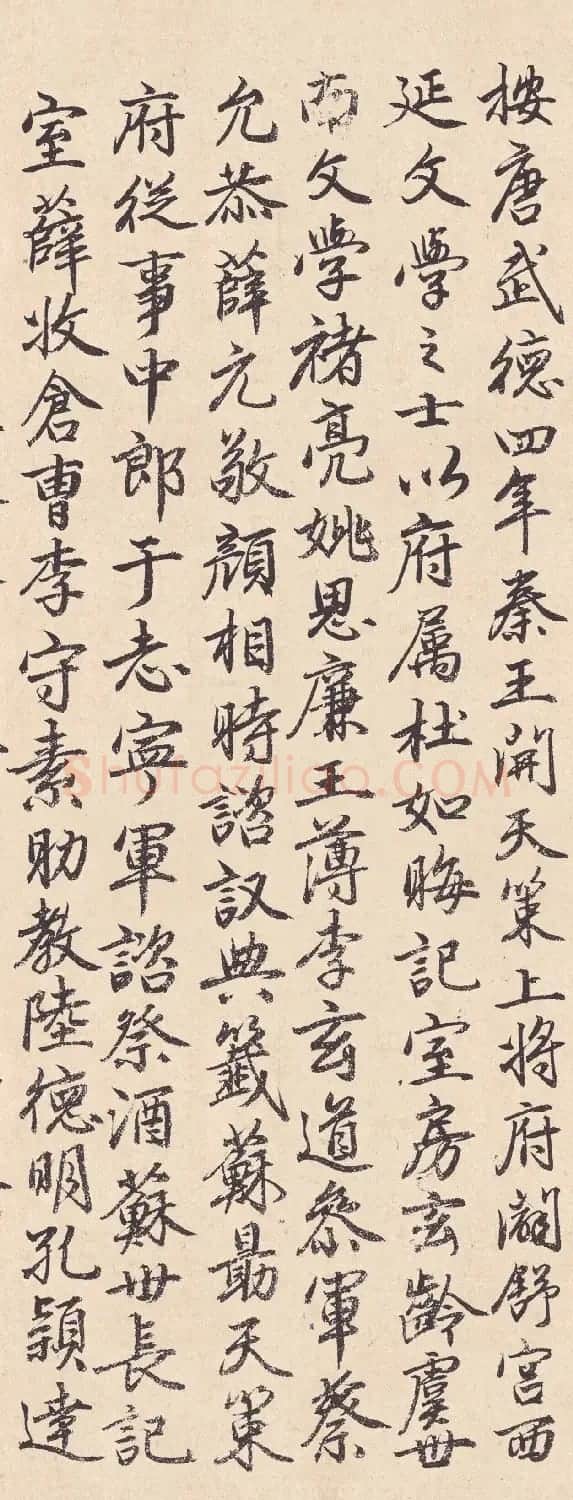 按唐武德四年秦王開天策上將府瀾舒宮西
延文學之士以府属杜如晦記室房玄齡虞世
南文學褚亮姚思廉王薄李玄道參軍蔡
允恭薛元敬顏相時諮議典籤蘇勗天策
府從事中郎于志寧軍諮祭酒蘇世長記
室薛收倉曹李守素助教陸德明孔穎達
Shufaziliao.COM